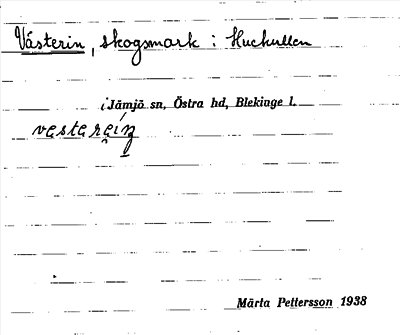 Västerin, skogsmark i Huckullen
i Jämjö sn, Östra hd, Blekinge l.
västeréiŋ
Märta Pettersson 1938